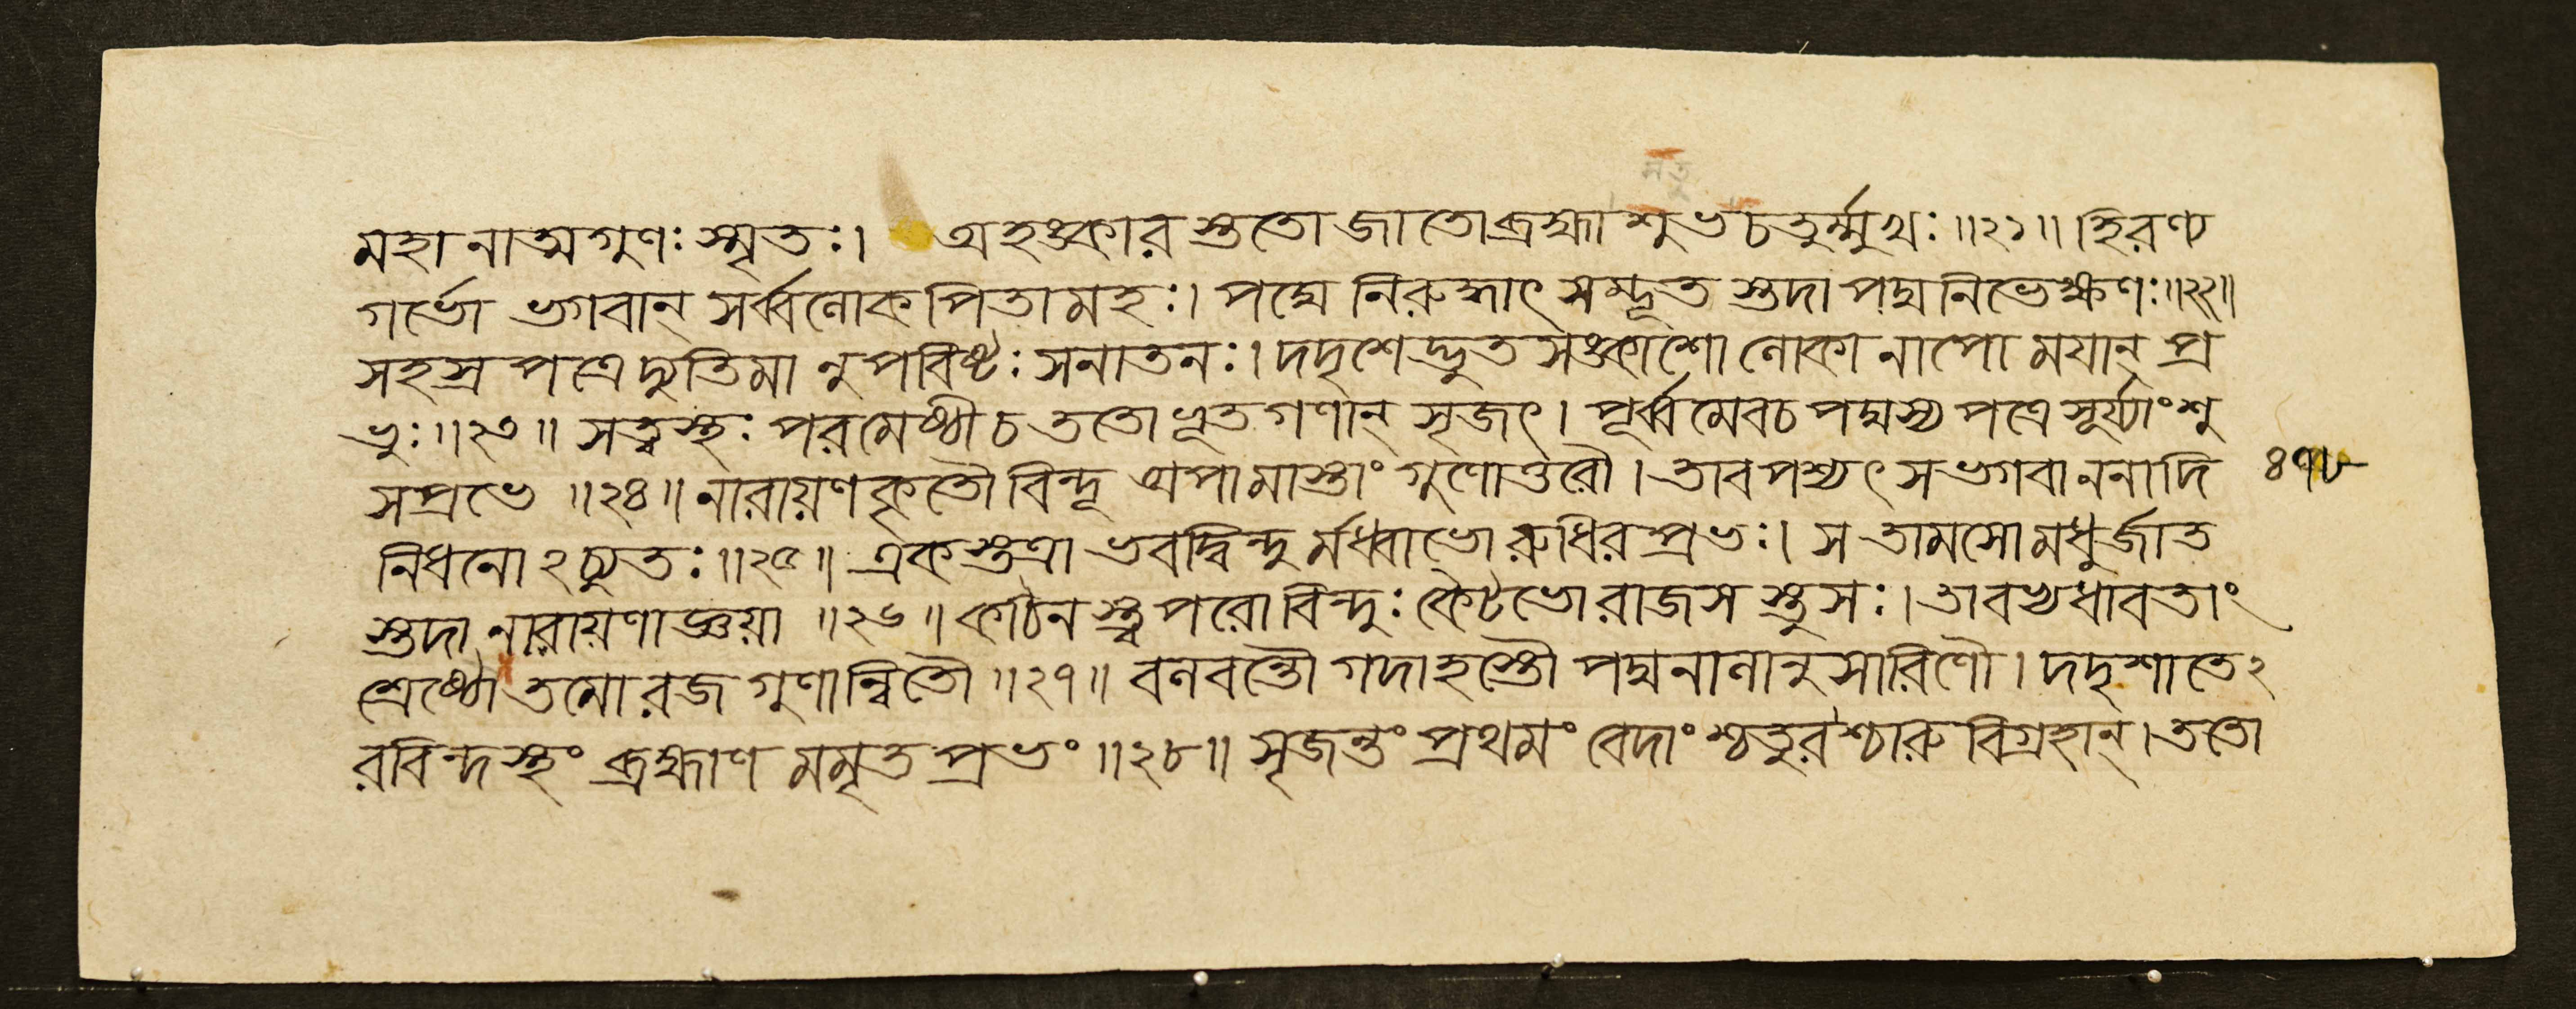 মহানাত্মগুণঃ স্মৃতঃ। অহঙ্কারস্ততোজাতোব্রহ্মাশুভচতুর্ম্মুখঃ॥২১॥ হিরণ্য
গর্ভো ভগবান্ সর্ব্বলোকপিতামহঃ। পদ্মেনিরুদ্ধাৎ সম্ভূতস্তদাপদ্মনিভেক্ষণঃ॥২২॥
সহস্রপত্রেদ্যুতিমানুপবিষ্টঃ সনাতনঃ। দদৃশেদ্ভুতসঙ্কাশো লোকানাপোময়ান্ প্র
ভুঃ॥২৩॥ সত্ত্বস্থঃ পরমেষ্ঠীচততোভূতগণান্ সৃজৎ। পূর্ব্বমেবচপদ্মস্যপত্রেসূর্য্যাংশু
সপ্রভে ॥২৪॥ নারায়ণকৃতৌবিন্দূ অপামাস্তাংগুণোত্তরৌ। তাবপশ্যৎ সভগবাননাদি ৪৭৮
নিধনোঽচ্যুতঃ॥২৫॥ একস্তত্রাভবদ্বিন্দুর্মধ্বাভোরুধিরপ্রভঃ। সতামসোমধুর্জাত
স্তদানারায়ণাজ্ঞয়া ॥২৬॥ কঠিনস্ত্বপরোবিন্দুঃ কৈটভোরাজসস্তুসঃ। তাবভ্যধাবতাং
শ্রেষ্ঠৌতমোরজগুণান্বিতৌ॥২৭॥ বলবন্তৌগদাহস্তৌপদ্মনালানুসারিণৌ। দদৃশাতেঽ
রবিন্দস্থং ব্রহ্মাণমমৃতপ্রভং॥২৮॥ সৃজন্তংপ্রথমংবেদাংশ্চতুরশ্চারুবিগ্রহান্।ততো